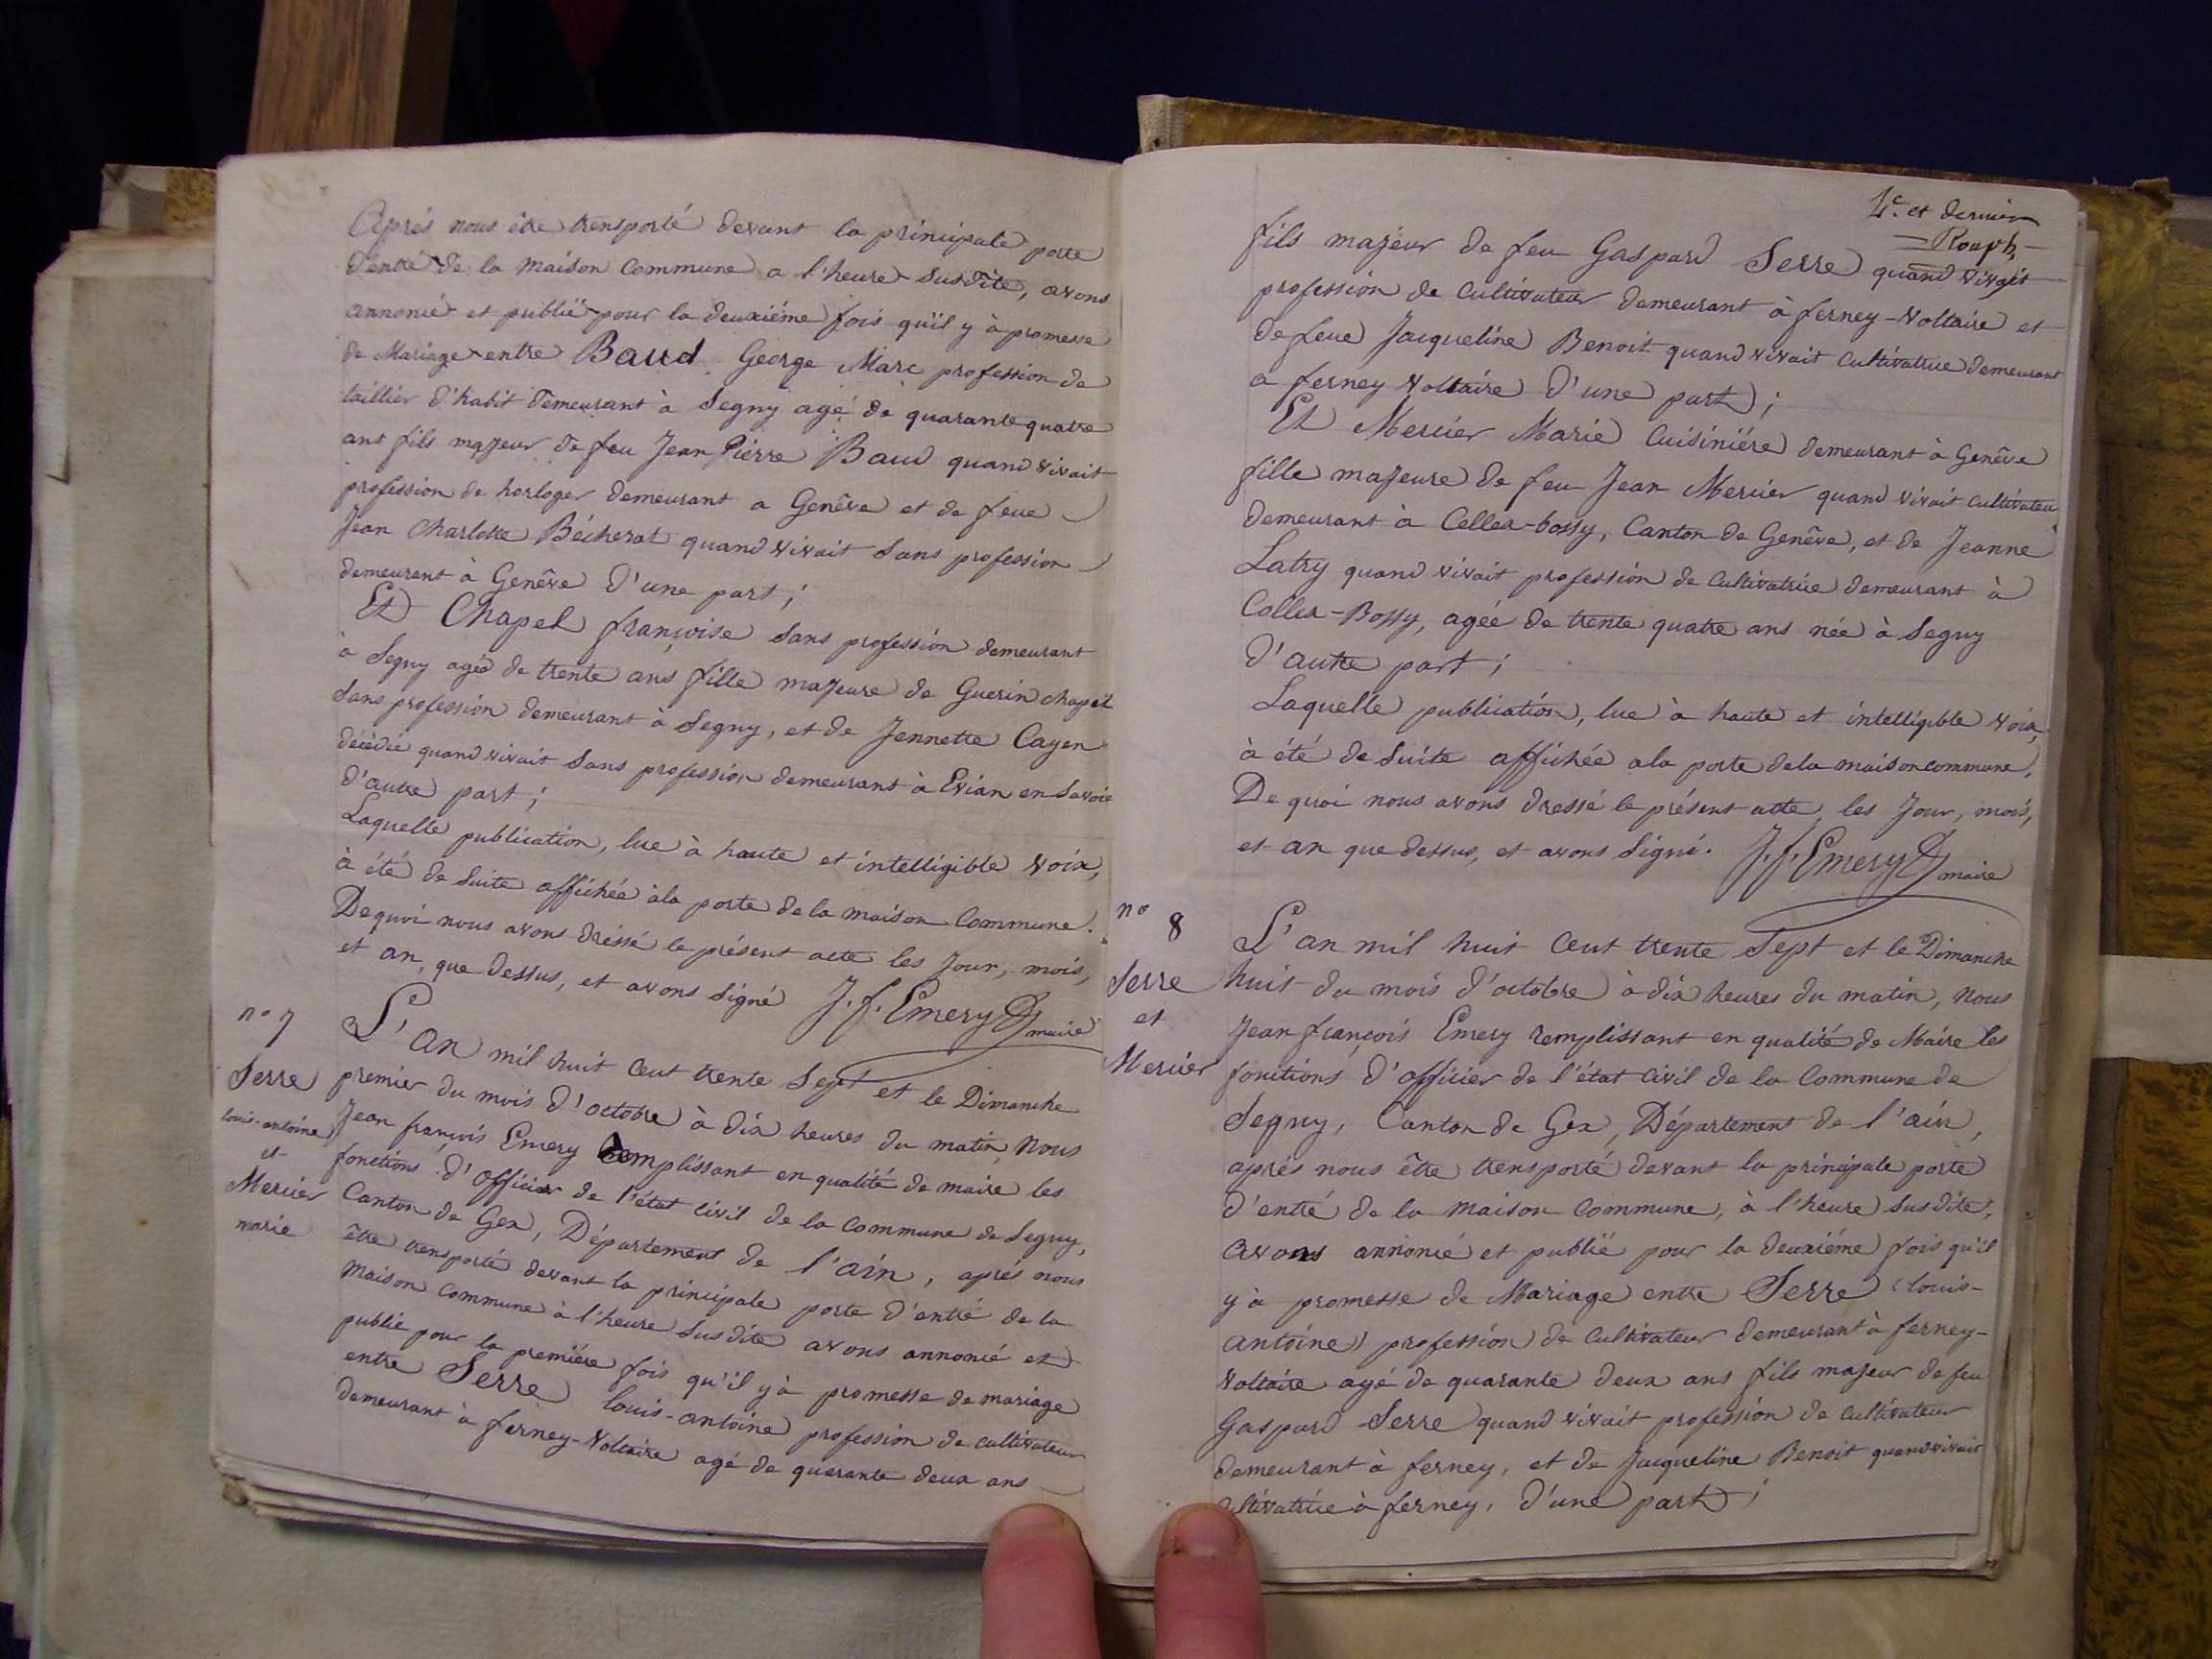 Aprés nous être transporté devant la principale porte
d'entré de la maison Commune a l'heure susdite, avons
annoncé et publié pour la deuxiéme fois qu'il y à promesse
de Mariage entre Baud George Marc profession de
taillier d'habit demeurant à Segny agé de quarante quatre
ans fils majeur de feu Jean Pierre Baud quand vivait
profession de horloger demeurant a Genêve et de feue
Jean Charlotte Bécherat quand vivait sans profession
demeurant à Genêve d'une part ;
Et Chapel françoise sans profession demeurant
à Segny agée de trente ans fille majeure de Guerin chapel
sans profession demeurant à Segny, et de Jennette Cayen
décédée quand vivait sans profession demeurant à Evian en Savoie
d'autre part ;
Laquelle publication, lue à haute et intelligible voix,
à été de suite affichée à la porte de la maison Commune.
De quoi nous avons dréssé le présent acte les Jour, mois,
et an, que dessus, et avons signé J. f. Emery maire
n° 7
Serre
louis-antoine
et
Mercier
marie
L'an mil huit cent trente Sept et le Dimanche
premier du mois d'octobre à dix heures du matin, Nous
Jean françois Emery remplissant en qualité de maire les
fonctions d'officier de l'état civil de la Commune de Segny,
Canton de Gex, Département de l'ain, aprés nous
être transporté devant la principale porte d'entré de la
maison Commune à l'heure susdite avons annoncé et
publié pour la premiére fois qu'il y à promesse de mariage
entre Serre louis-antoine profession de cultivateur
demeurant à ferney-Voltaire agé de quarante deux ans
4e et dernier
fils majeur de feu Gaspard Serre quand vivait
profession de Cultivateur demeurant à ferney-Voltaire et
de feue Jacqueline Benoit quand vivait cultivatrice demeurant
a ferney Voltaire d'une part ;
Et Mercier Marie Cuisiniére demeurant à Genêve
fille majeure de feu Jean Mercier quand vivait cultivateur
demeurant à Collex-bossy, Canton de Genêve, et de Jeanne
Latry quand vivait profession de Cultivatrice demeurant à
Collex-Bossy, agée de trente quatre ans née à Segny
d'autre part ;
Laquelle publication, lue à haute et intelligible voix,
à été de suite affichée a la porte de la maison commune,
De quoi nous avons dressé le présent acte, les Jour, mois,
et an que dessus, et avons signé. J. f. Emery maire
n° 8
Serre
et
Mercier
L'an mil huit cent trente Sept et le Dimanche
huit du mois d'octobre à dix heures du matin, nous
Jean françois Emery remplissant en qualité de Maire les
fonctions d'officier de l'état civil de la Commune de
Segny, Canton de Gex, Département de l'ain,
aprés nous être transporté devant la principale porte
d'entré de la maison Commune, à l'heure susdite,
avons annoncé et publié pour la deuxiéme fois qu'il
y à promesse de Mariage entre Serre (louis-
antoine) profession de Cultivateur demeurant à ferney-
Voltaire agé de quarante deux ans fils majeur de feu
Gaspard Serre quand vivait profession de Cultivateur
demeurant à ferney, et de Jacqueline Benoit quand vivait
cultivatrice à ferney, d'une part ;